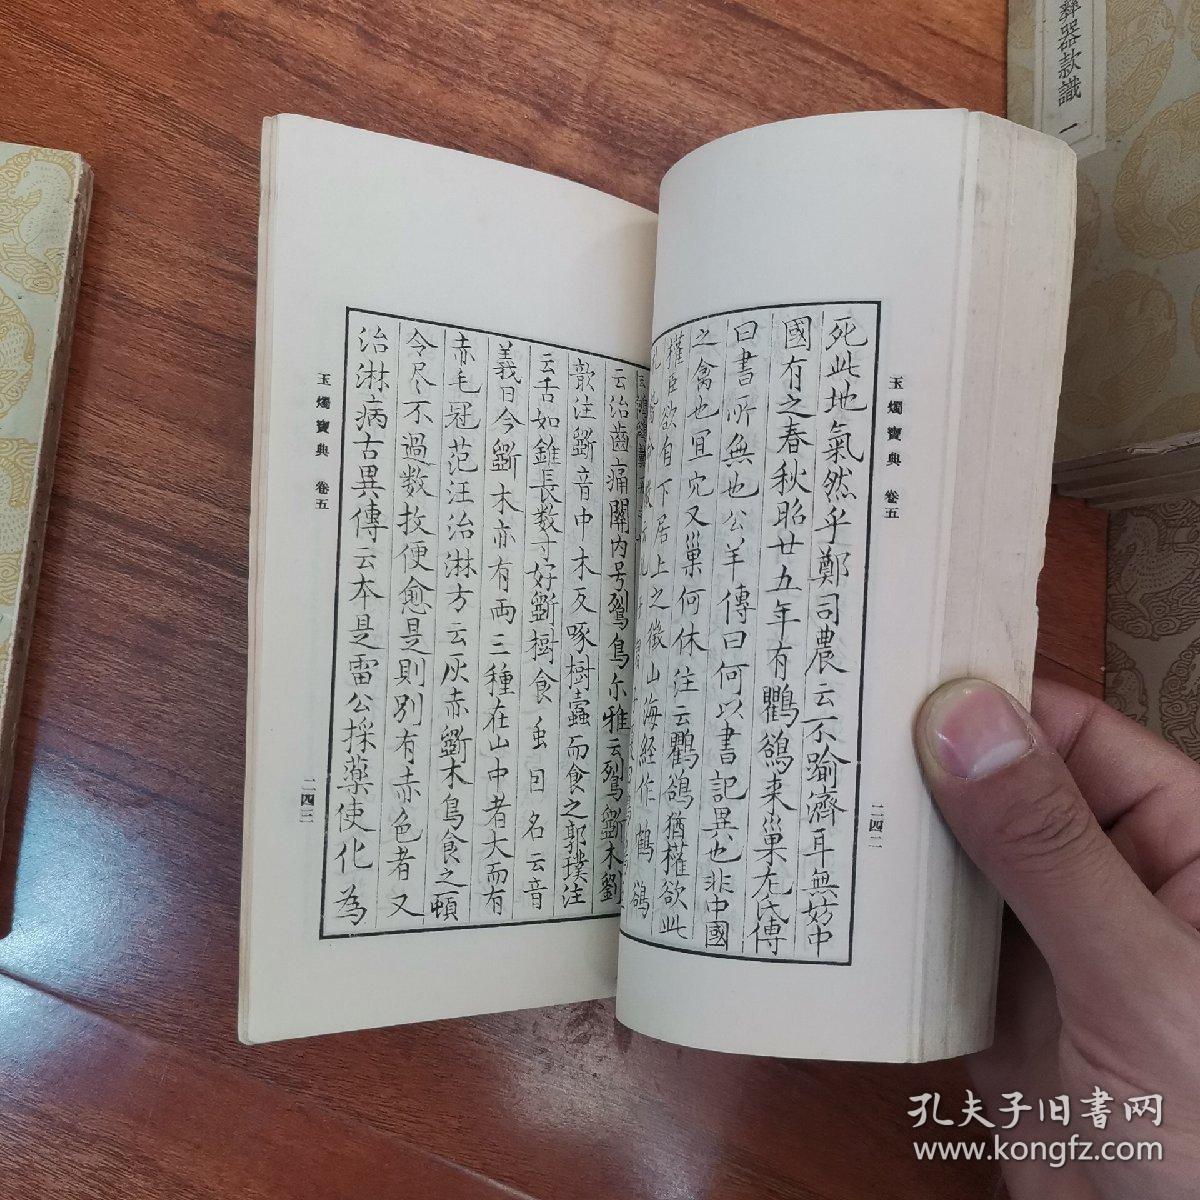 玉燭寶典 卷五
二四二
死此地氣然乎鄭司農云不踰濟耳無妨中
國有之春秋昭廿五年有鸜鵒来巢左氏傳
曰書所無也公羊傳曰何以書記異也非中國
之禽也冝穴又巢何休注云鸜鵒猶權欲此
權臣欲自下居上之徵山海経作鸜鵒
云治齒痛關内号鴷鳥尔雅云鴷斵木劉
歆注斵音中木反啄樹蠧而食之郭璞注
云舌如錐長数寸好斵樹食虫曰名云音
義曰今斵木亦有兩三種在山中者大而有
赤毛冠范汪治淋方云灰赤斵木鳥食之頓
令尽不過数枚便愈是則别有赤色者又
治淋病古異傳云本是雷公採藥使化為
玉燭寶典 卷五
二四三
彝器款識 一
孔夫子旧书网
www.kongfz.com